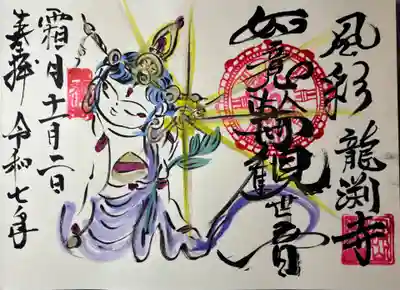 風彩 龍渕寺
如意輪観世音
霜月 十一月二日
奉拝 令和七年